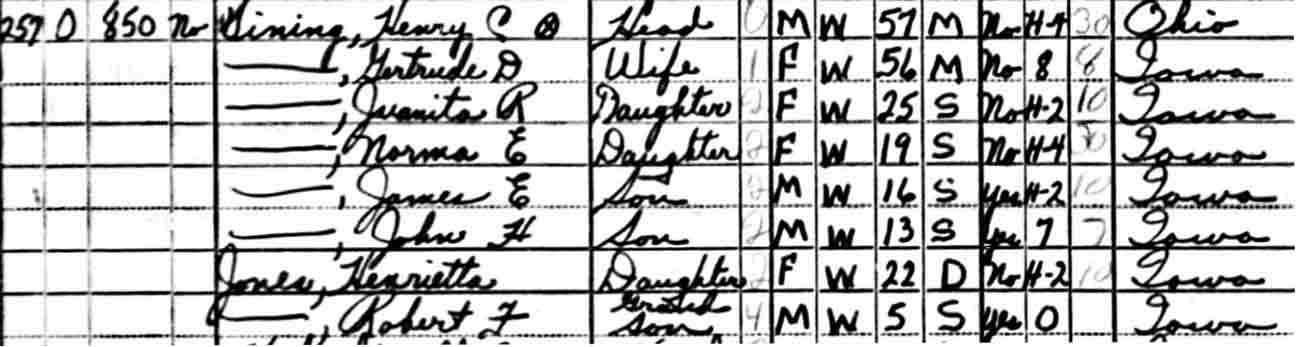 257 O 850 No Gining, Henry C ⊗ Head 0 M W 57 M No H-4 30 Ohio
——, Gertrude D Wife 1 F W 56 M No 8 8 Iowa
——, Juanita R Daughter 2 F W 25 S No H-2 10 Iowa
——, Norma E Daughter 2 F W 19 S No H-4 30 Iowa
——, James E Son 2 M W 16 S Yes H-2 10 Iowa
——, John H Son 2 M W 13 S Yes 7 7 Iowa
Jones, Henrietta Daughter 2 F W 22 D No H-2 10 Iowa
——, Robert F Grand Son 4 M W 5 S Yes 0 Iowa